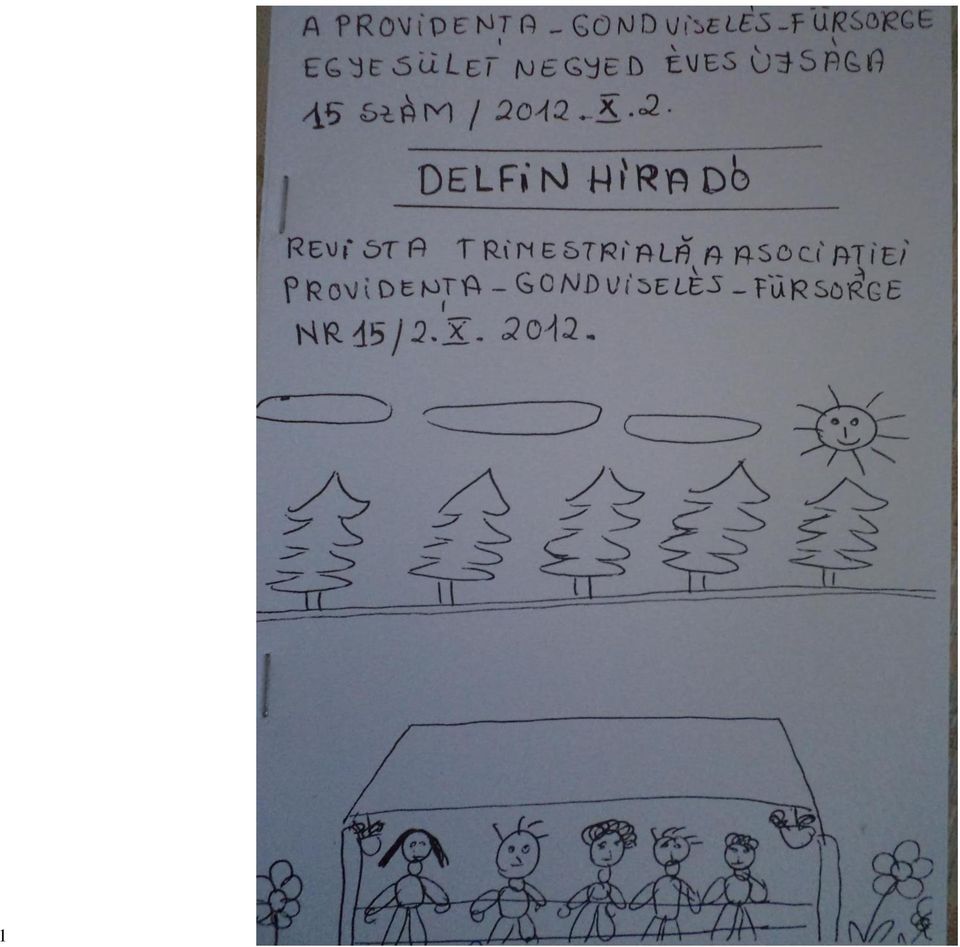 A PROVIDENȚA - GONDVISELÉS - FÜRSORGE
EGYESÜLET NEGYED ÉVES ÚJSÁGA
15 SZÁM / 2012. X. 2.
DELFIN HÍRADÓ
REVISTA TRIMESTRIALĂ A ASOCIAȚIEI
PROVIDENȚA - GONDVISELÉS - FÜRSORGE
NR 15 / 2. X. 2012.
1